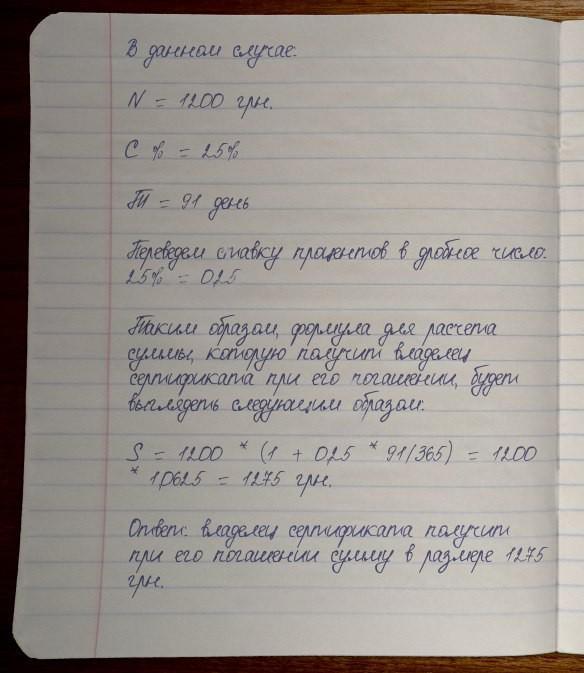 В данном случае:
N = 1200 грн.
C % = 25%
T = 91 день
Переведем ставку процентов в дробное число:
25% = 0,25
Таким образом, формула для расчета
суммы, которую получит владелец
сертификата при его погашении, будет
выглядеть следующим образом:
S = 1200 * (1 + 0,25 * 91/365) = 1200
* 1,0625 = 1275 грн.
Ответ: владелец сертификата получит
при его погашении сумму в размере 1275
грн.